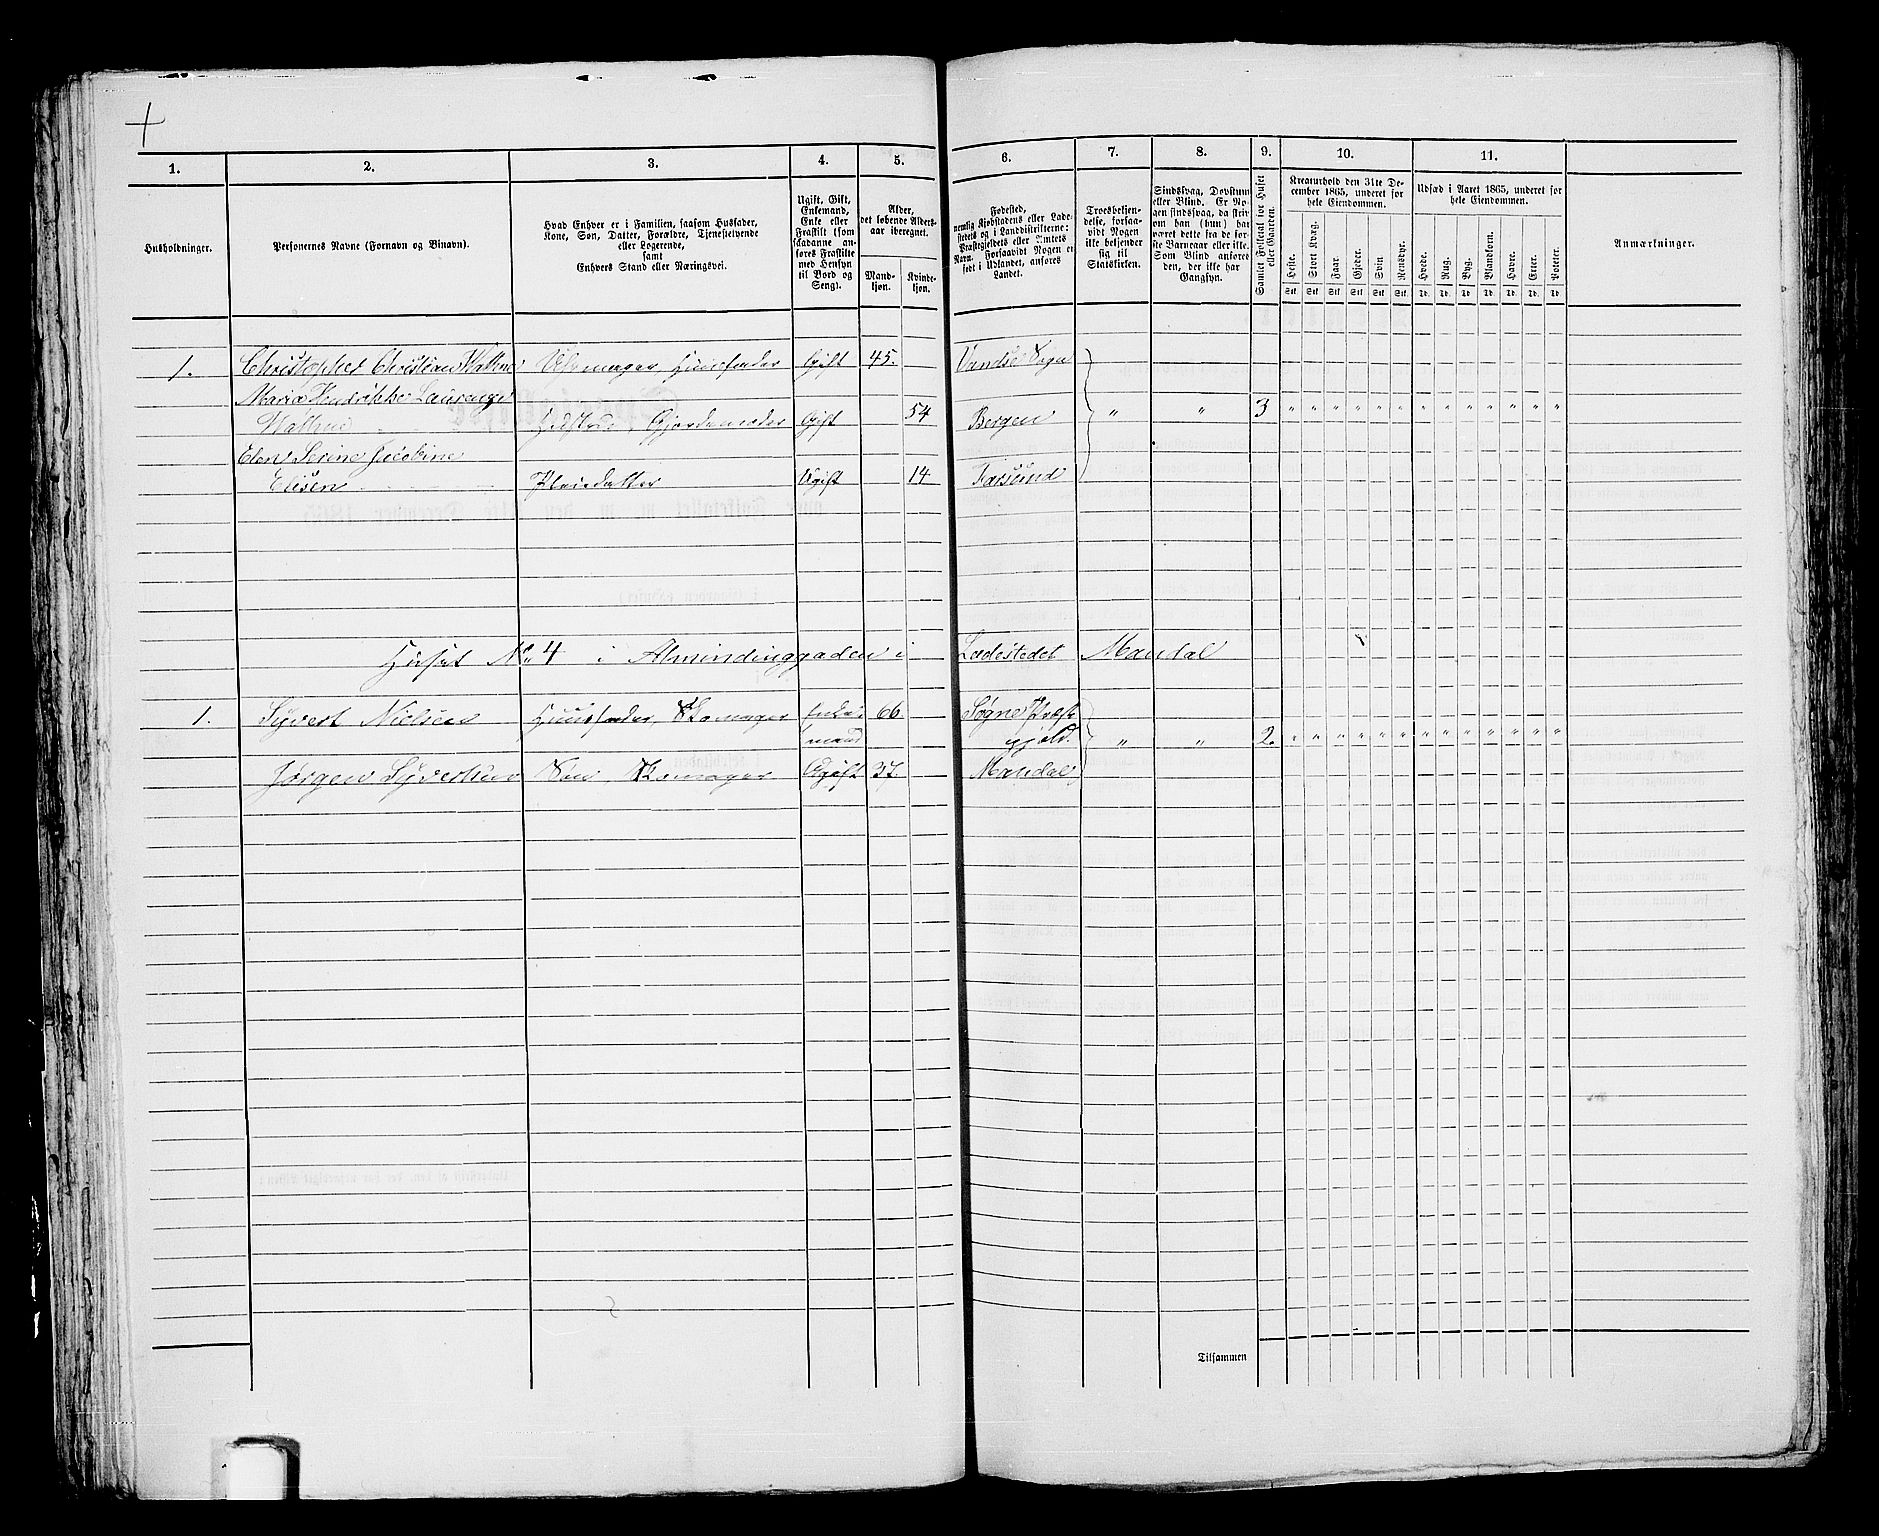 1. 2. 3. 4. 5. 6. 7. 8. 9. 10. 11.
Husholdninger.
Personernes Navne (Fornavn og Binavn).
Hvad Enhver er i Familien, saasom Husfader,
Kone, Søn, Datter, Forældre, Tjenestetyende
eller Logerende,
samt
Enhvers Stand eller Næringsvei.
Ugift, Gift,
Enkemand,
Enke eller
Fraskilt (som
saadanne an-
føres Fraskilte
med Hensyn
til Bord og
Seng).
Alder,
det løbende Alders-
aar iberegnet.
Mand-
kjøn.
Kvinde-
kjøn.
Fødested,
nemlig Kjøbstadens eller Lade-
stedets og i Landdistrikterne:
Præstegjeldets eller Amtets
Navn. Forsaavidt Nogen er
født i Udlandet, anføres
Landet.
Troesbekjen-
delse, forsaa-
vidt Nogen
ikke bekjender
sig til
Statskirken.
Sindssvag, Døvstum
eller Blind. Er No-
gen sindssvag, da skriv
om han (hun) har
været dette fra de før-
ste Barneaar eller ikke.
Som Blind anføres
den, der ikke har
Gangsyn.
Samlet Folketal for Huset
eller Gaarden.
Kreaturhold den 31te De-
cember 1865, underet for
hele Eiendommen.
Heste. Stort Kvæg. Faar. Gjeder. Svin. Rensdyr.
Stk. Stk. Stk. Stk. Stk. Stk.
Udsæd i Aaret 1865, underet for
hele Eiendommen.
Hvede. Rug. Byg. Blandkorn. Havre. Erter. Poteter.
Td. Td. Td. Td. Td. Td. Td.
Anmærkninger.
1. Christopher Christian Huusfader Gift 45. Sogn
Maria Hendrikke
Gjordemoder Gift 54 Bergen " " 3 " " " " " " " " " " " " "
Elen Serine Jacobine
Pleiedatter Ugift 14 Farsund
Huset No 4 i Almindinggaden i Ladestedet Mandal
1. Syvert Nielsen Huusfader, Skomager Enke- 66. Søgne Præste
mand gjeld. " " 2. " " " " " " " " " " " " "
Jørgen Syvertsen Søn, Skomager Ugift 37. Mandal
Tilsammen